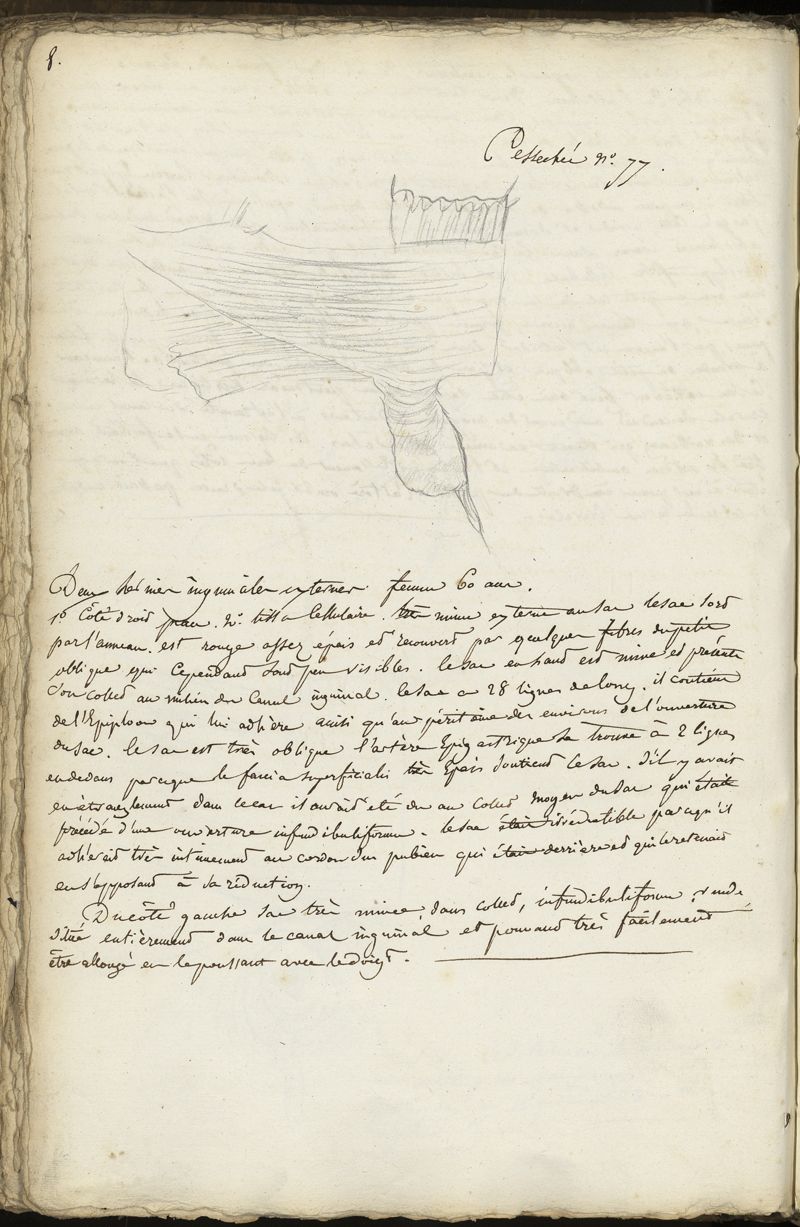 8.
n.° 77.
Deux hernies inguinales externes. femme 60 ans.
1° Côté droit peau. n.° tissu Cellulaire. mince externe au sac le sac sort
par l'anneau. est rouge assez épais et recouvert par quelques fibres du petit
oblique qui Cependant sont peu visibles. le sac en haut est mince et présente
son collet au milieu du Canal inguinal. le sac a 28 lignes de long. il contient
de l'Epiploon qui lui adhère ainsi qu'au péritoine des environs de l'ouverture
du sac. le sac est très oblique l'artère Epigastrique se trouve à 2 lignes
en dedans parceque le fascia superficialis très Epais soutient le sac. S'il y avait
eu étranglement dans ce cas il aurait été du au Collet moyen du sac qui était
précédé d'une ouverture infundibuliforme. le sac était irréductible parcequ'il
adhérait très intimement au cordon sus pubien qui était derrière et qui le retenait
en s'opposant à sa réduction.
Du côté gauche sac très mince, sans collet, infundibuliforme,
situé entièrement dans le canal inguinal et pouvant très facilement
être allongé en le poussant avec le doigt.